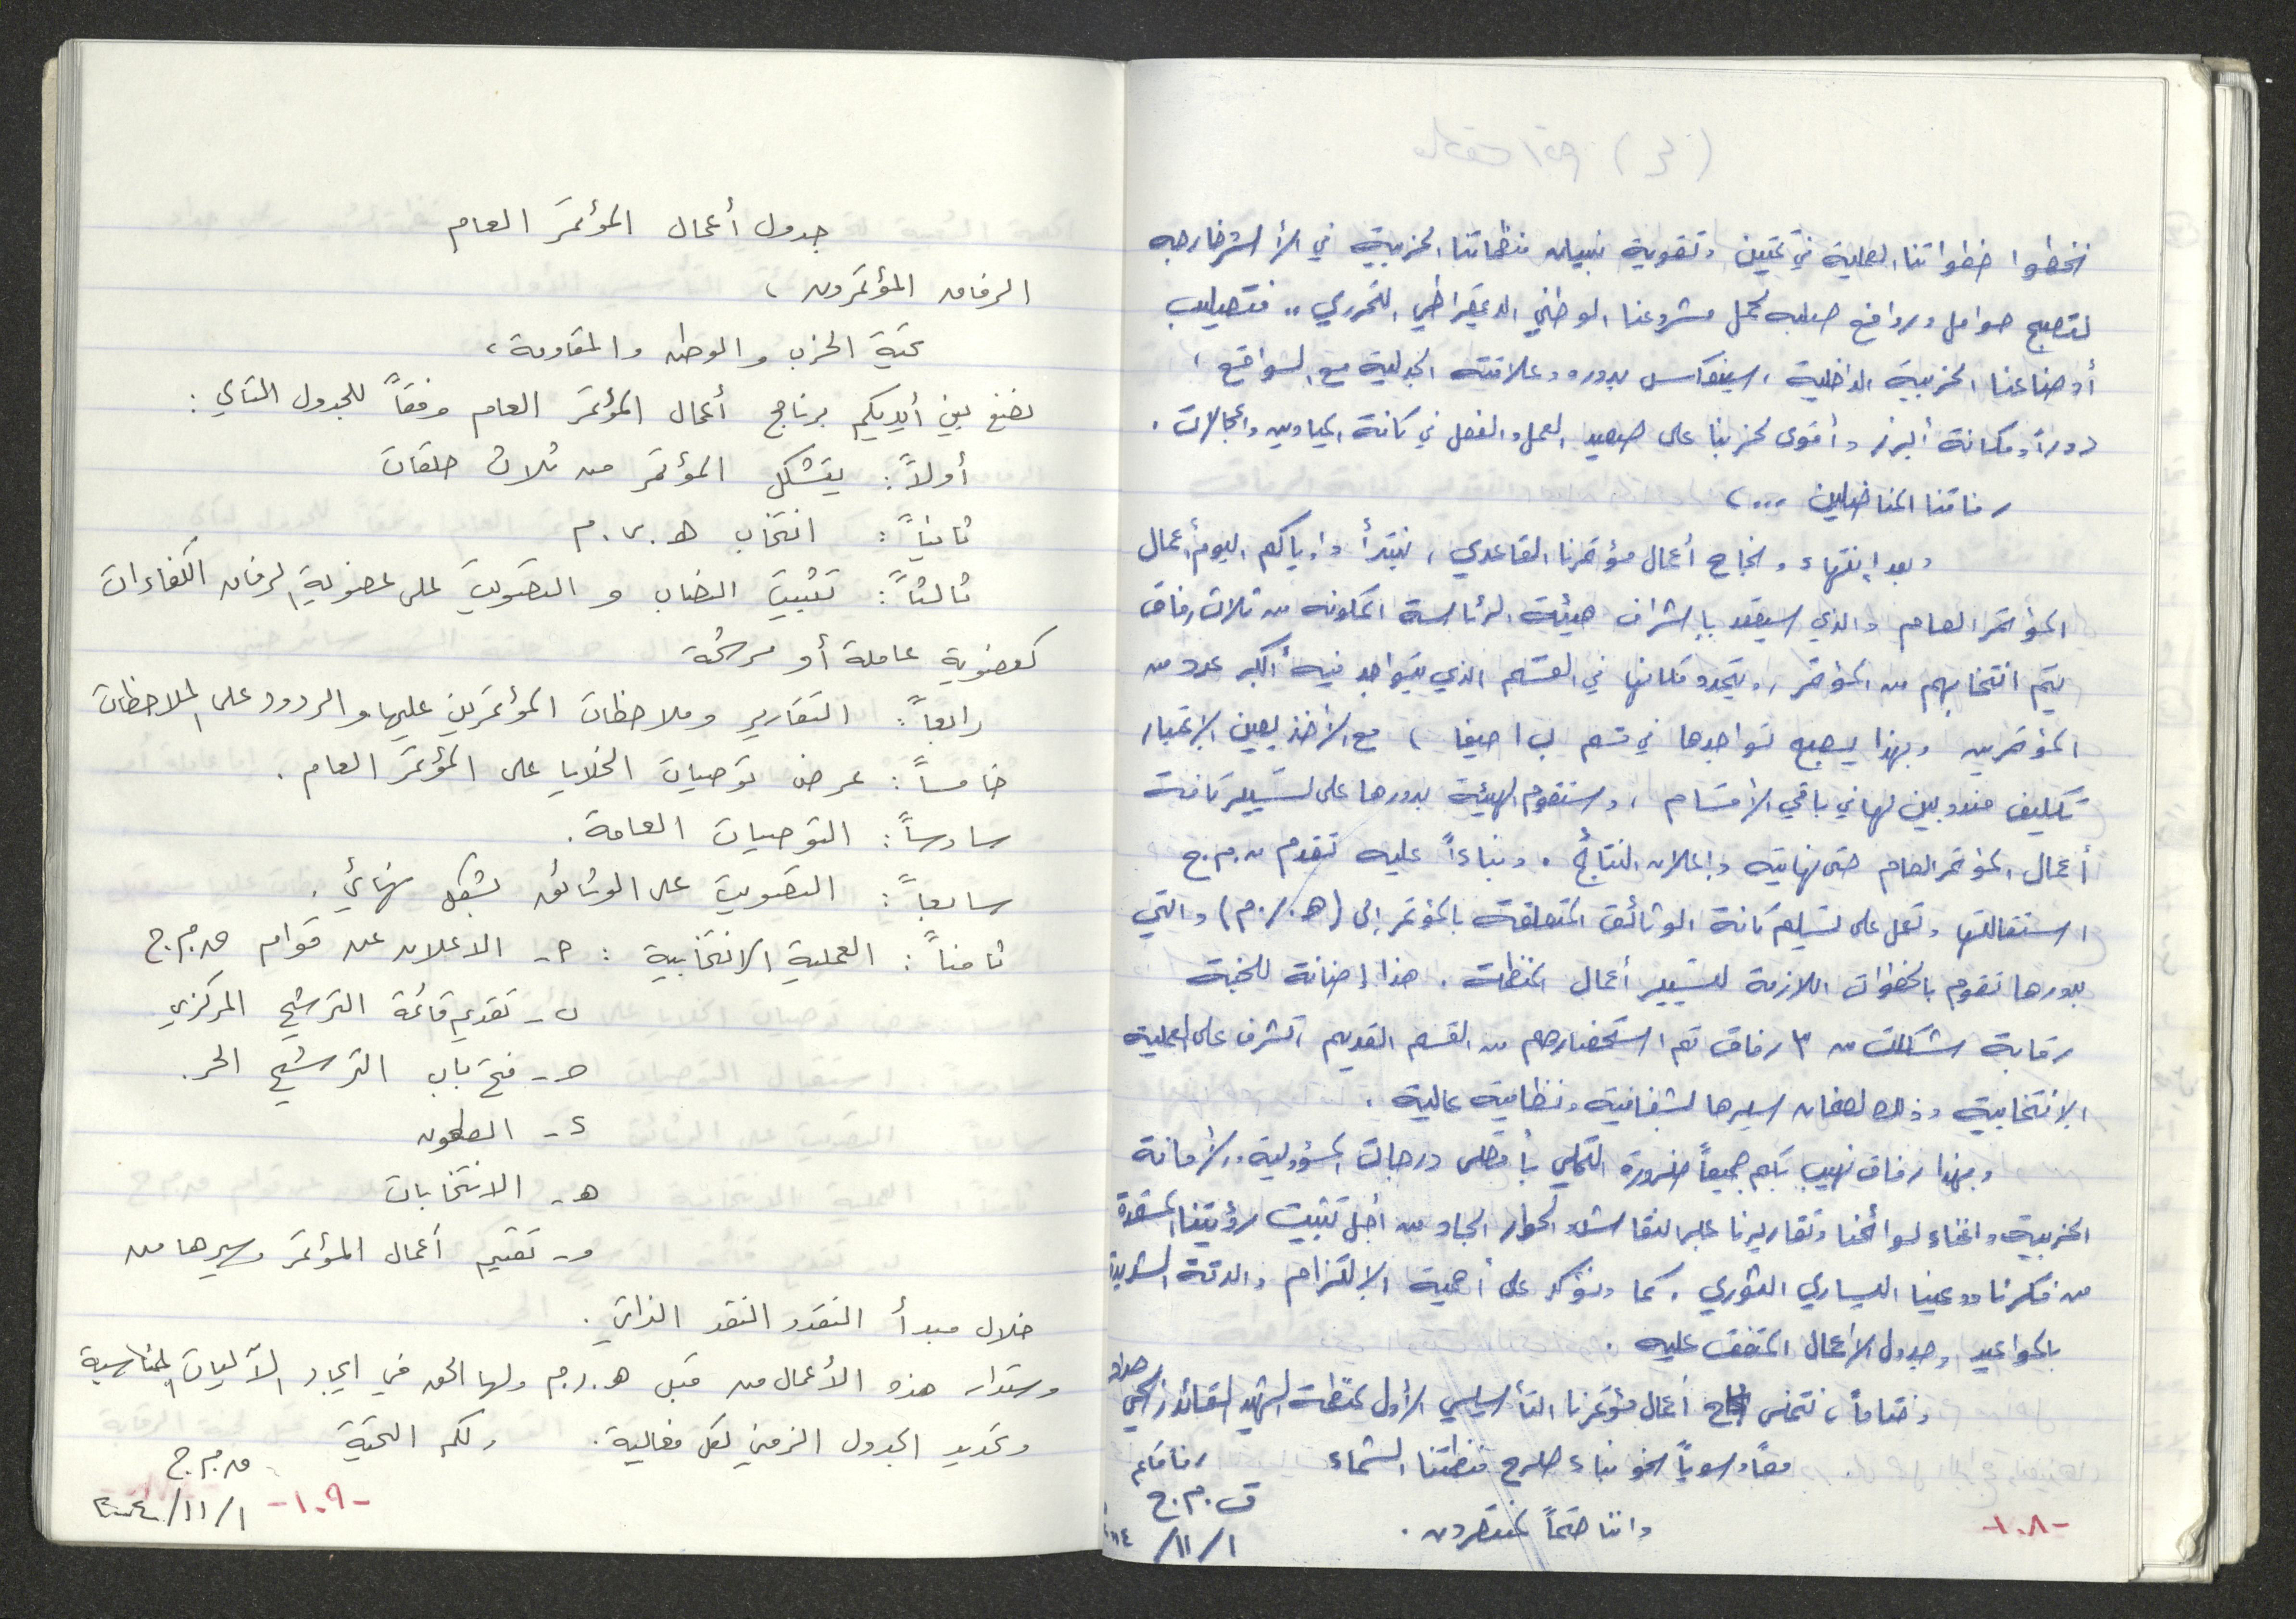 نخطوا خطواتنا العملية في تمتين وتقوية بنيان منظماتنا الحزبية في الأسر وخارجه
لتصبح حوامل وروافع صلبه لحمل مشروعنا الوطني الديمقراطي التحرري .. فتصليب
أوضاعنا الحزبية الداخلية، سينعكس بدوره وعلاقته الجدلية مع الواقع،
دوراً ومكانة أبرز وأقوى لحزبنا على صعيد العمل والفعل في كافة الميادين والمجالات.
رفاقنا المناضلين ...،
وبعد إنتهاء ونجاح أعمال مؤتمرنا القاعدي، نبتدأ وإياكم اليوم أعمال
المؤتمر العام والذي سيعقد بإشراف هيئة الرئاسة المكونه من ثلاث رفاق
يتم انتخابهم من المؤتمر، ويتحدد مكانها في القسم الذي يتواجد فيه أكبر عدد من
المؤتمرين وبهذا يصبح تواجدها في قسم ب، مع الأخذ بعين الإعتبار
تكليف مندوبين لها في باقي الأقسام، وستقوم الهيئة بدورها على تسيير كافة
أعمال المؤتمر العام حتى نهايته وإعلان النتائج. وبناءاً عليه تقدم ق.م.ج
استقالتها وتعمل على تسليم كافة الوثائق المتعلقة بالمؤتمر إلى (هـ.ر.م) والتي
بدورها تقوم بالخطوات اللازمة لتسيير أعمال المنظمة. هذا إضافة للجنة
رقابة شكلت من ٣ رفاق تم استحضارهم من القسم القديم، تشرف على العملية
الإنتخابية وذلك لضمان سيرها بشفافية ونظامية عالية.
وبهذا رفاق نهيب بكم جميعاً ضرورة التحلي بأقصى درجات المسؤولية والأمانة
الحزبية واغناء لوائحنا وتقاريرنا عبر النقاش والحوار الجاد من أجل تثبيت رؤيتنا المستمدة
من فكرنا ووعينا اليساري الثوري. كما ونؤكد على أهمية الإلتزام والدقة الشديدة
بالمواعيد وجدول الأعمال المتفق عليه.
وختاماً، نتمنى نجاح أعمال مؤتمرنا التأسيسي الأول لمنظمة الشهيد القائد
معاً وسوياً نحو بناء صرح منظمتنا الشماء رفاقكم
واننا حتماً لمنتصرون. ق.م.ج
١/ ١١/
-١٠٨-
جدول أعمال المؤتمر العام
الرفاق المؤتمرون،
تحية الحزب والوطن والمقاومة،
نضع بين أيديكم برنامج أعمال المؤتمر العام وفقاً للجدول التالي:
أولاً: يتشكل المؤتمر من ثلاث حلقات
ثانياً: انتخاب هـ.ر.م
ثالثاً: تثبيت النصاب و التصويت على عضوية الرفاق الكفاءات
كعضوية عاملة أو مرشحة
رابعاً: التقارير وملاحظات المؤتمرين عليها والردود على الملاحظات
خامساً: عرض توصيات الخلايا على المؤتمر العام.
سادساً: التوصيات العامة.
سابعاً: التصويت على الوثائق بشكل نهائي.
ثامناً: العملية الانتخابية: أ- الاعلان عن قوام ق.م.ج
ب- تقديم قائمة الترشيح المركزي
جـ- فتح باب الترشيح الحر.
د- الطعون
هـ- الانتخابات
و- تقييم أعمال المؤتمر وسيرها من
خلال مبدأ النقد والنقد الذاتي.
وستدار هذه الأعمال من قبل هـ.ر.م ولها الحق في ايجاد الآليات المناسبة
وتحديد الجدول الزمني لكل فعالية. ولكم التحية
ق.م.ج
١/ ١١/ ٢٠١٤
-١٠٩-